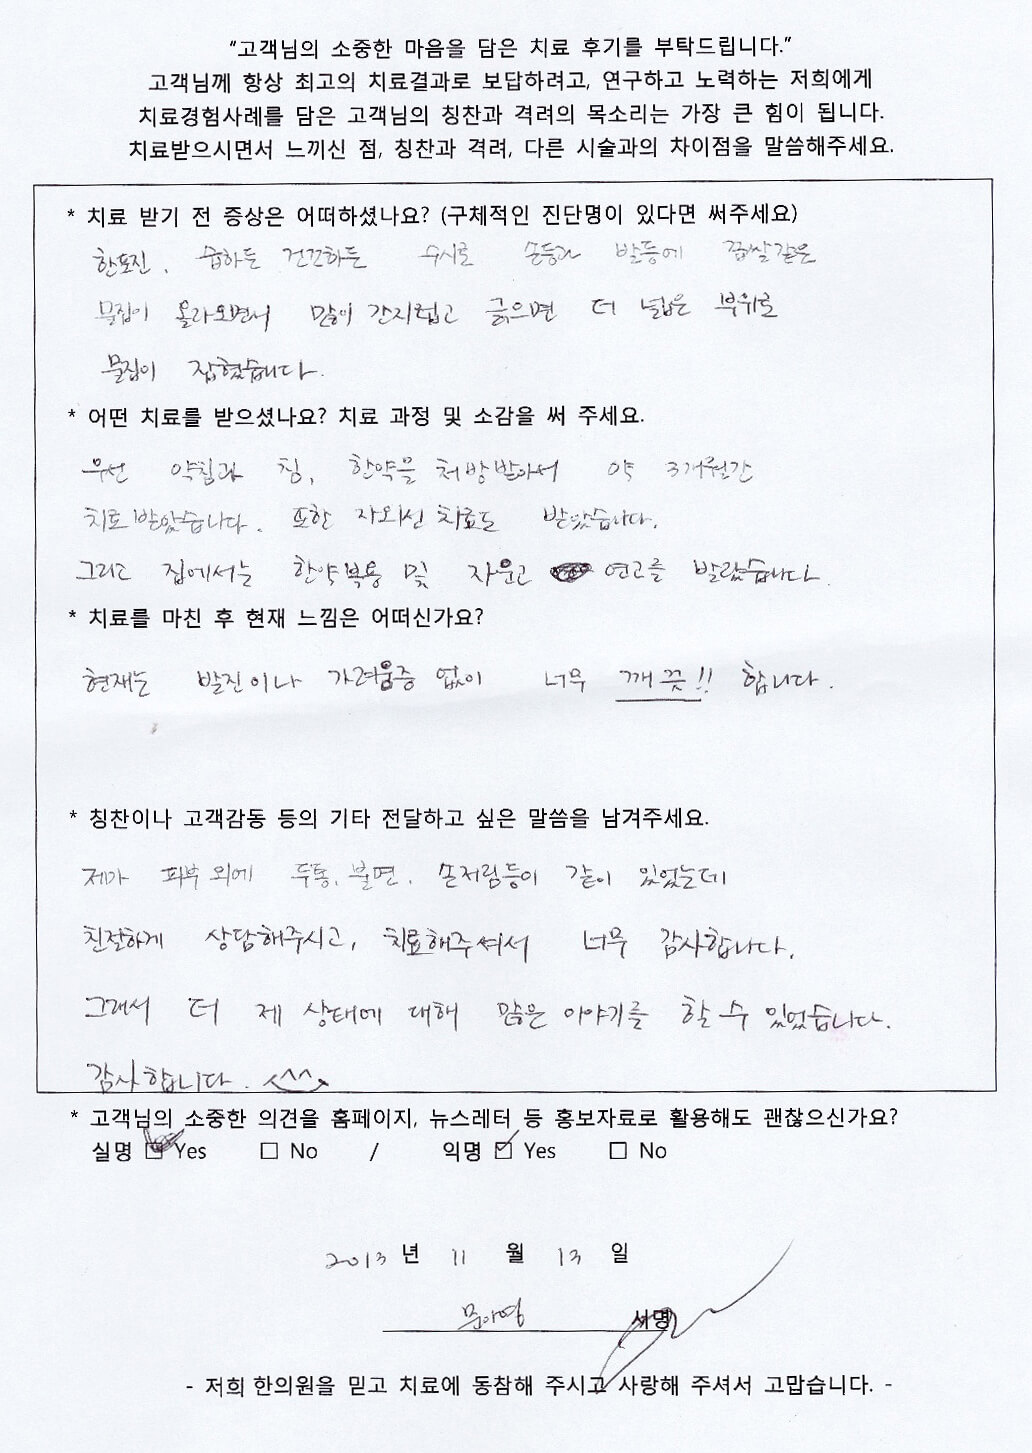 "고객님의 소중한 마음을 담은 치료 후기를 부탁드립니다."
고객님께 항상 최고의 치료결과로 보답하려고, 연구하고 노력하는 저희에게
치료경험사례를 담은 고객님의 칭찬과 격려의 목소리는 가장 큰 힘이 됩니다.
치료받으시면서 느끼신 점, 칭찬과 격려, 다른 시술과의 차이점을 말씀해주세요.
* 치료 받기 전 증상은 어떠하셨나요? (구체적인 진단명이 있다면 써주세요)
한포진. 습하든 건건하든 수시로 손등과 발등에 좁쌀같은
물집이 올라오면서 많이 간지럽고 긁으면 더 넓은 부위로
물집이 잡혔습니다.
* 어떤 치료를 받으셨나요? 치료 과정 및 소감을 써 주세요.
우선 약침과 침, 한약을 처방받아서 약 3개월간
치료받았습니다. 또한 자외선 치료도 받았습니다.
그리고 집에서는 한약복용 및 자운고 연고를 발랐습니다.
* 치료를 마친 후 현재 느낌은 어떠신가요?
현재는 발진이나 가려움증 없이 너무 깨끗!! 합니다.
* 칭찬이나 고객감동 등의 기타 전달하고 싶은 말씀을 남겨주세요.
제가 피부 외에 두통, 불면, 손저림등이 같이 있었는데
친절하게 상담해주시고, 치료해주셔서 너무 감사합니다.
그래서 더 제 상태에 대해 많은 이야기를 할 수 있었습니다.
감사합니다. ^^
* 고객님의 소중한 의견을 홈페이지, 뉴스레터 등 홍보자료로 활용해도 괜찮으신가요?
실명 ☑ Yes ☐ No / 익명 ☑ Yes ☐ No
2013 년 11 월 13 일
문아영 서명
- 저희 한의원을 믿고 치료에 동참해 주시고 사랑해 주셔서 고맙습니다. -